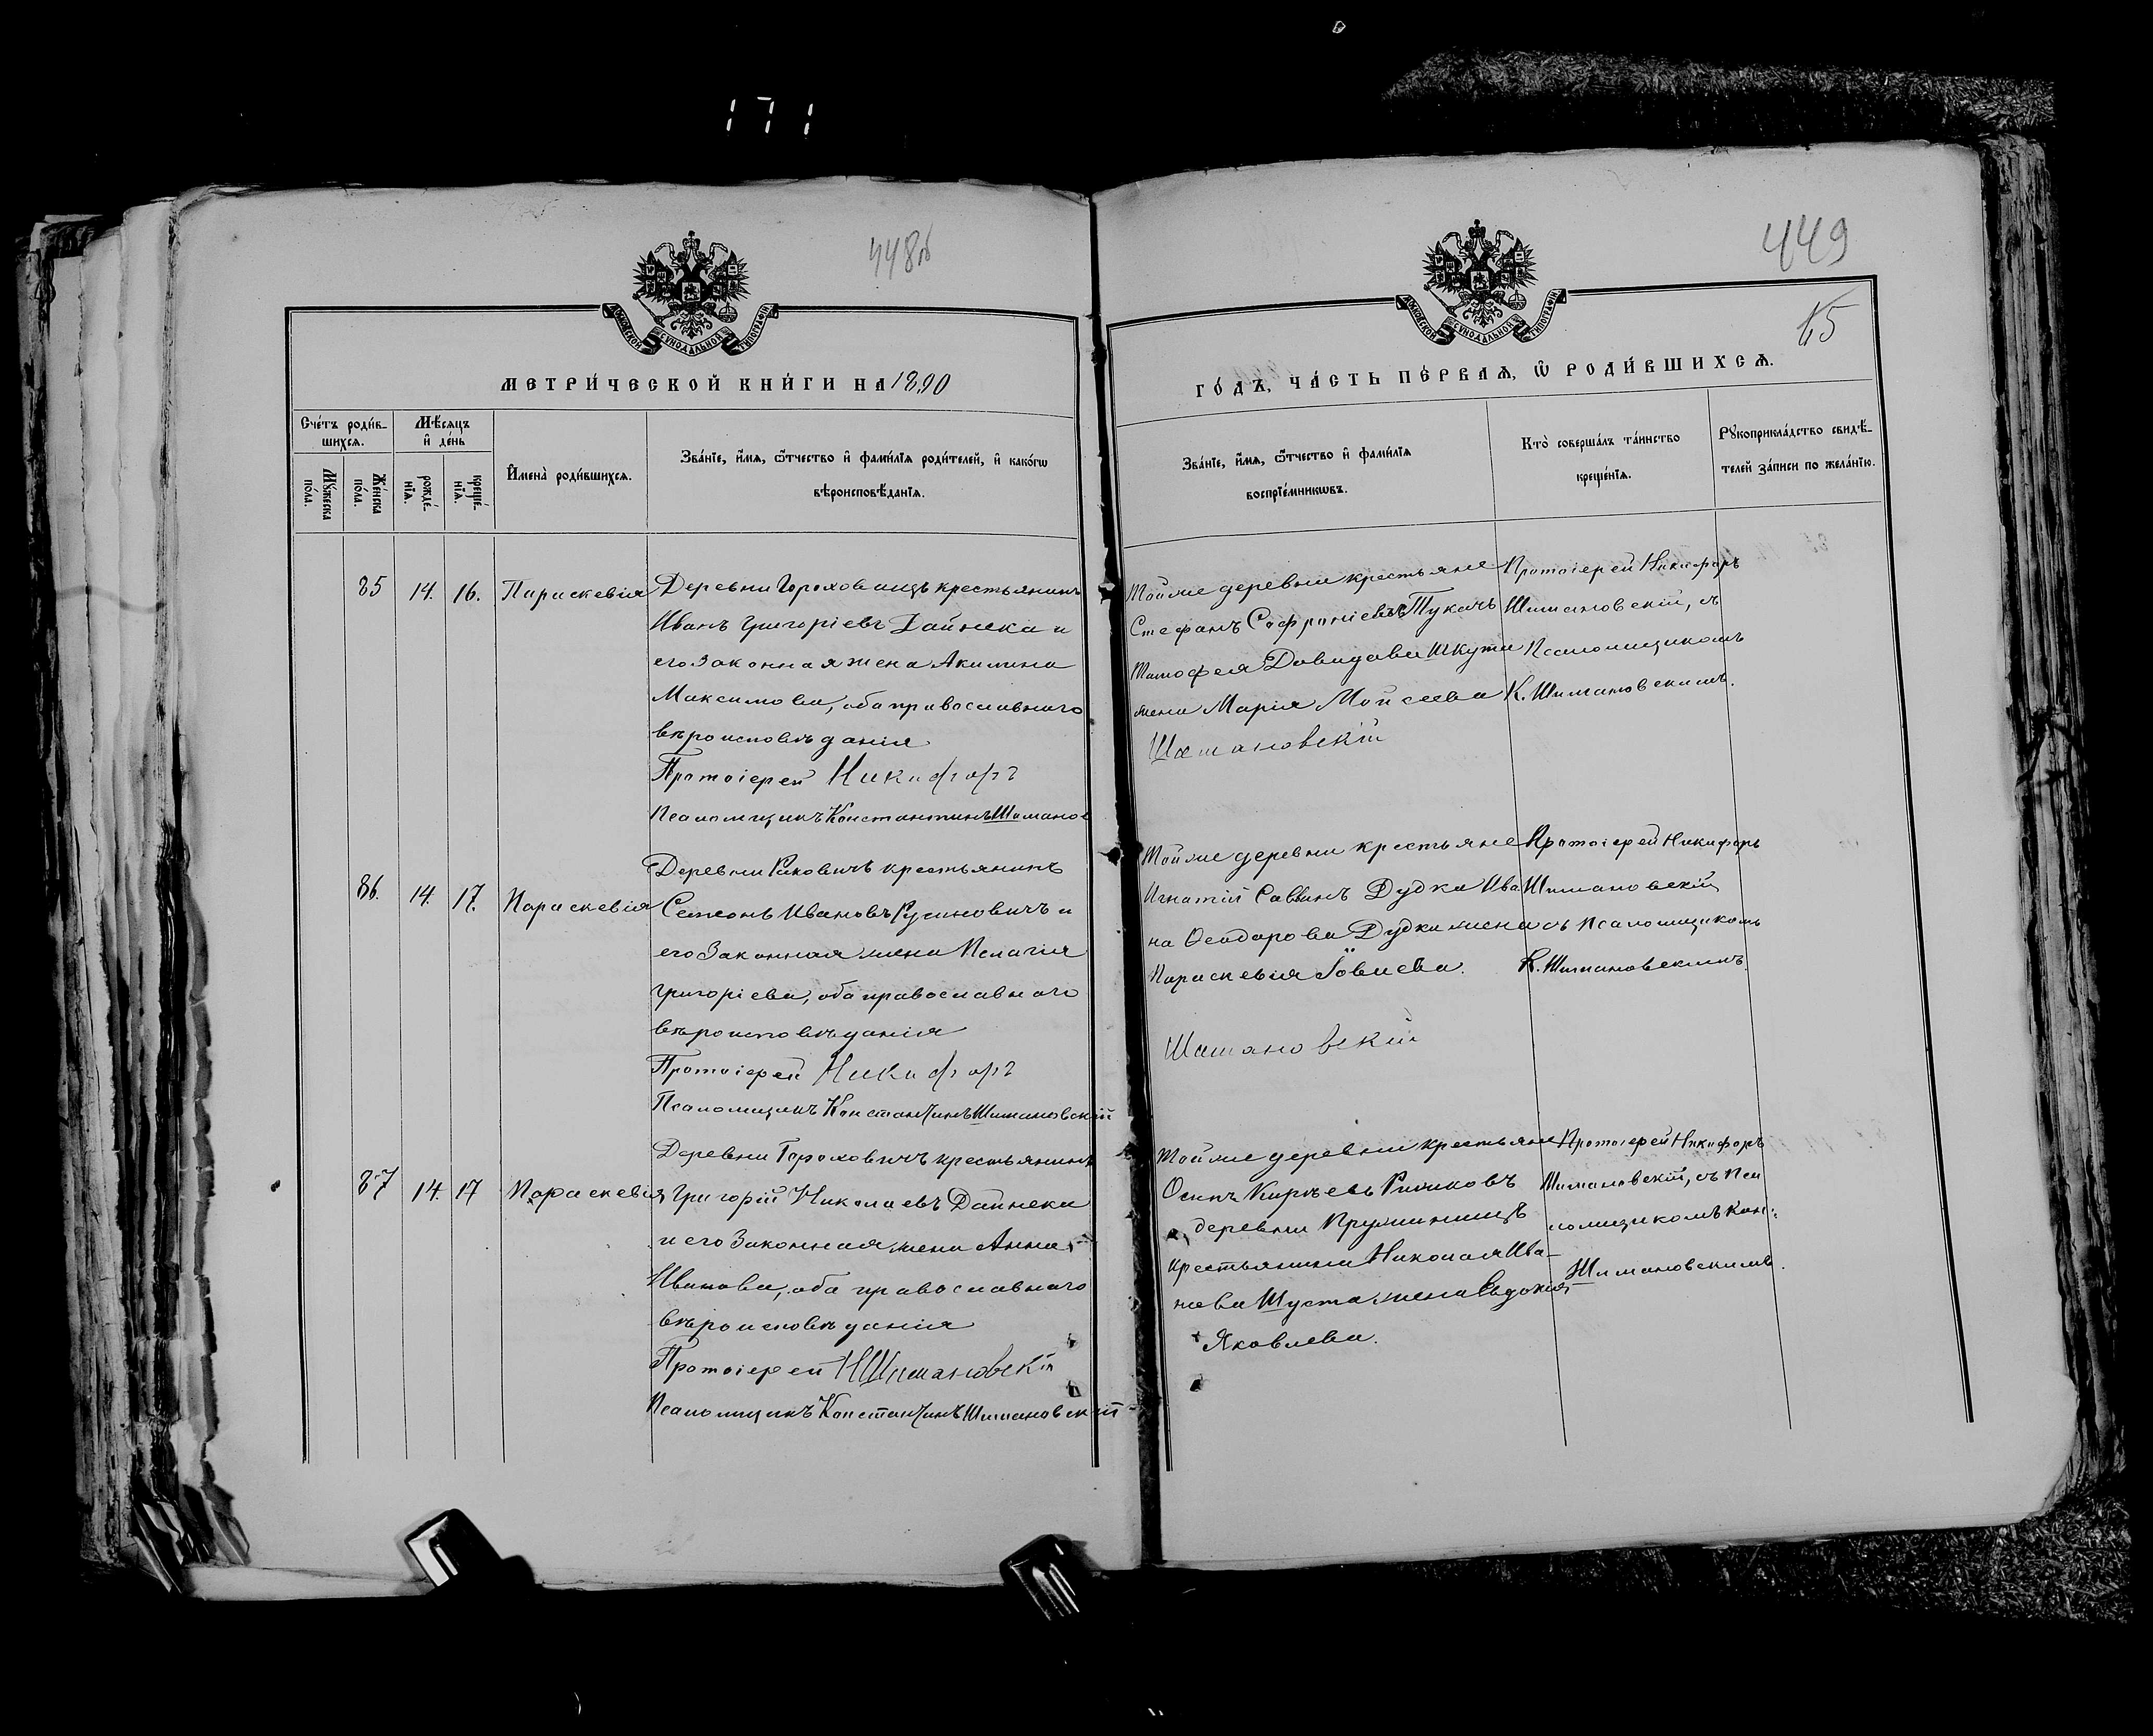 171
448об
449
65
МОСКОВСКОЙ СУНОДАЛЬНОЙ ТИПОГРАФІИ
МОСКОВСКОЙ СУНОДАЛЬНОЙ ТИПОГРАФІИ
МЕТРИ́ЧЕСКОЙ КНИ́ГИ НА 1890
ГО́ДЪ, ЧА́СТЬ ПЕ́РВАѦ, Ѡ РОДИ́ВШИХСѦ.
Сче́тъ роди́в-
шихсѧ.
Мꙋ́жеска
по́ла.
Же́нска
по́ла.
Мѣ́сѧцъ
и҆ де́нь
рожде́-
нїѧ.
креще́-
нїѧ.
И҆мена̀ роди́вшихсѧ.
Зва́нїе, и҆́мѧ, ѻ҆́тчество и҆ фами́лїѧ роди́телей, и҆ како́гѡ
вѣроисповѣ́данїѧ.
Зва́нїе, и҆́мѧ, ѻ҆́тчество и҆ фами́лїѧ
воспрїе́мникѡвъ.
Кто̀ соверша́лъ та́инство
креще́нїѧ.
Рꙋкоприкла́дство свидѣ́-
телей за́писи по жела́нїю.
85 14. 16. Параскевія
Деревни крестьянинъ
Иванъ Григоріевъ Дайнека и
его законная жена Акилина
Максимова, оба православнаго
вѣроисповѣданія
Протоіерей Никифоръ
Псаломщикъ Константинъ Шиманов
Тойже деревни крестьяне
Стефанъ Софроніевъ Тукачъ
Тимофея Давидова Шкути
жена Марія Моисеева
Шимановскій
Протоіерей Никифоръ
Шимановскій, съ
Псаломщикомъ
К. Шимановскимъ.
86. 14. 17. Параскевія
Деревни Раковичъ крестьянинъ
Семеонъ Ивановъ Русиновичъ и
его законная жена Пелагія
Григоріева, оба православнаго
вѣроисповѣданія
Протоіерей Никифоръ
Псаломщикъ Константинъ Шимановскій
Тойже деревни крестьяне
Игнатій Саввинъ Дудка Ива
на Ѳеодорова Дудки жена
Параскевія Іовиева.
Шимановскій
Протоіерей Никифоръ
Шимановскій
съ Псаломщикомъ
К. Шимановскимъ.
87 14. 17 Параскевія
Деревни Гороховичъ крестьянинъ
Григорій Николаевъ Дайнека
и его законная жена Анна
Иванова, оба православнаго
вѣроисповѣданія
Протоіерей Н Шимановскій
Псаломщикъ Константинъ Шимановскій
Тойже деревни крестьяне
Осипъ
деревни
крестьянина Николая Ива-
нова Шуста жена Евдокія
Яковлева.
Протоіерей Никифоръ
Шимановскій, съ Пса
ломщикомъ Кон:
Шимановскимъ.